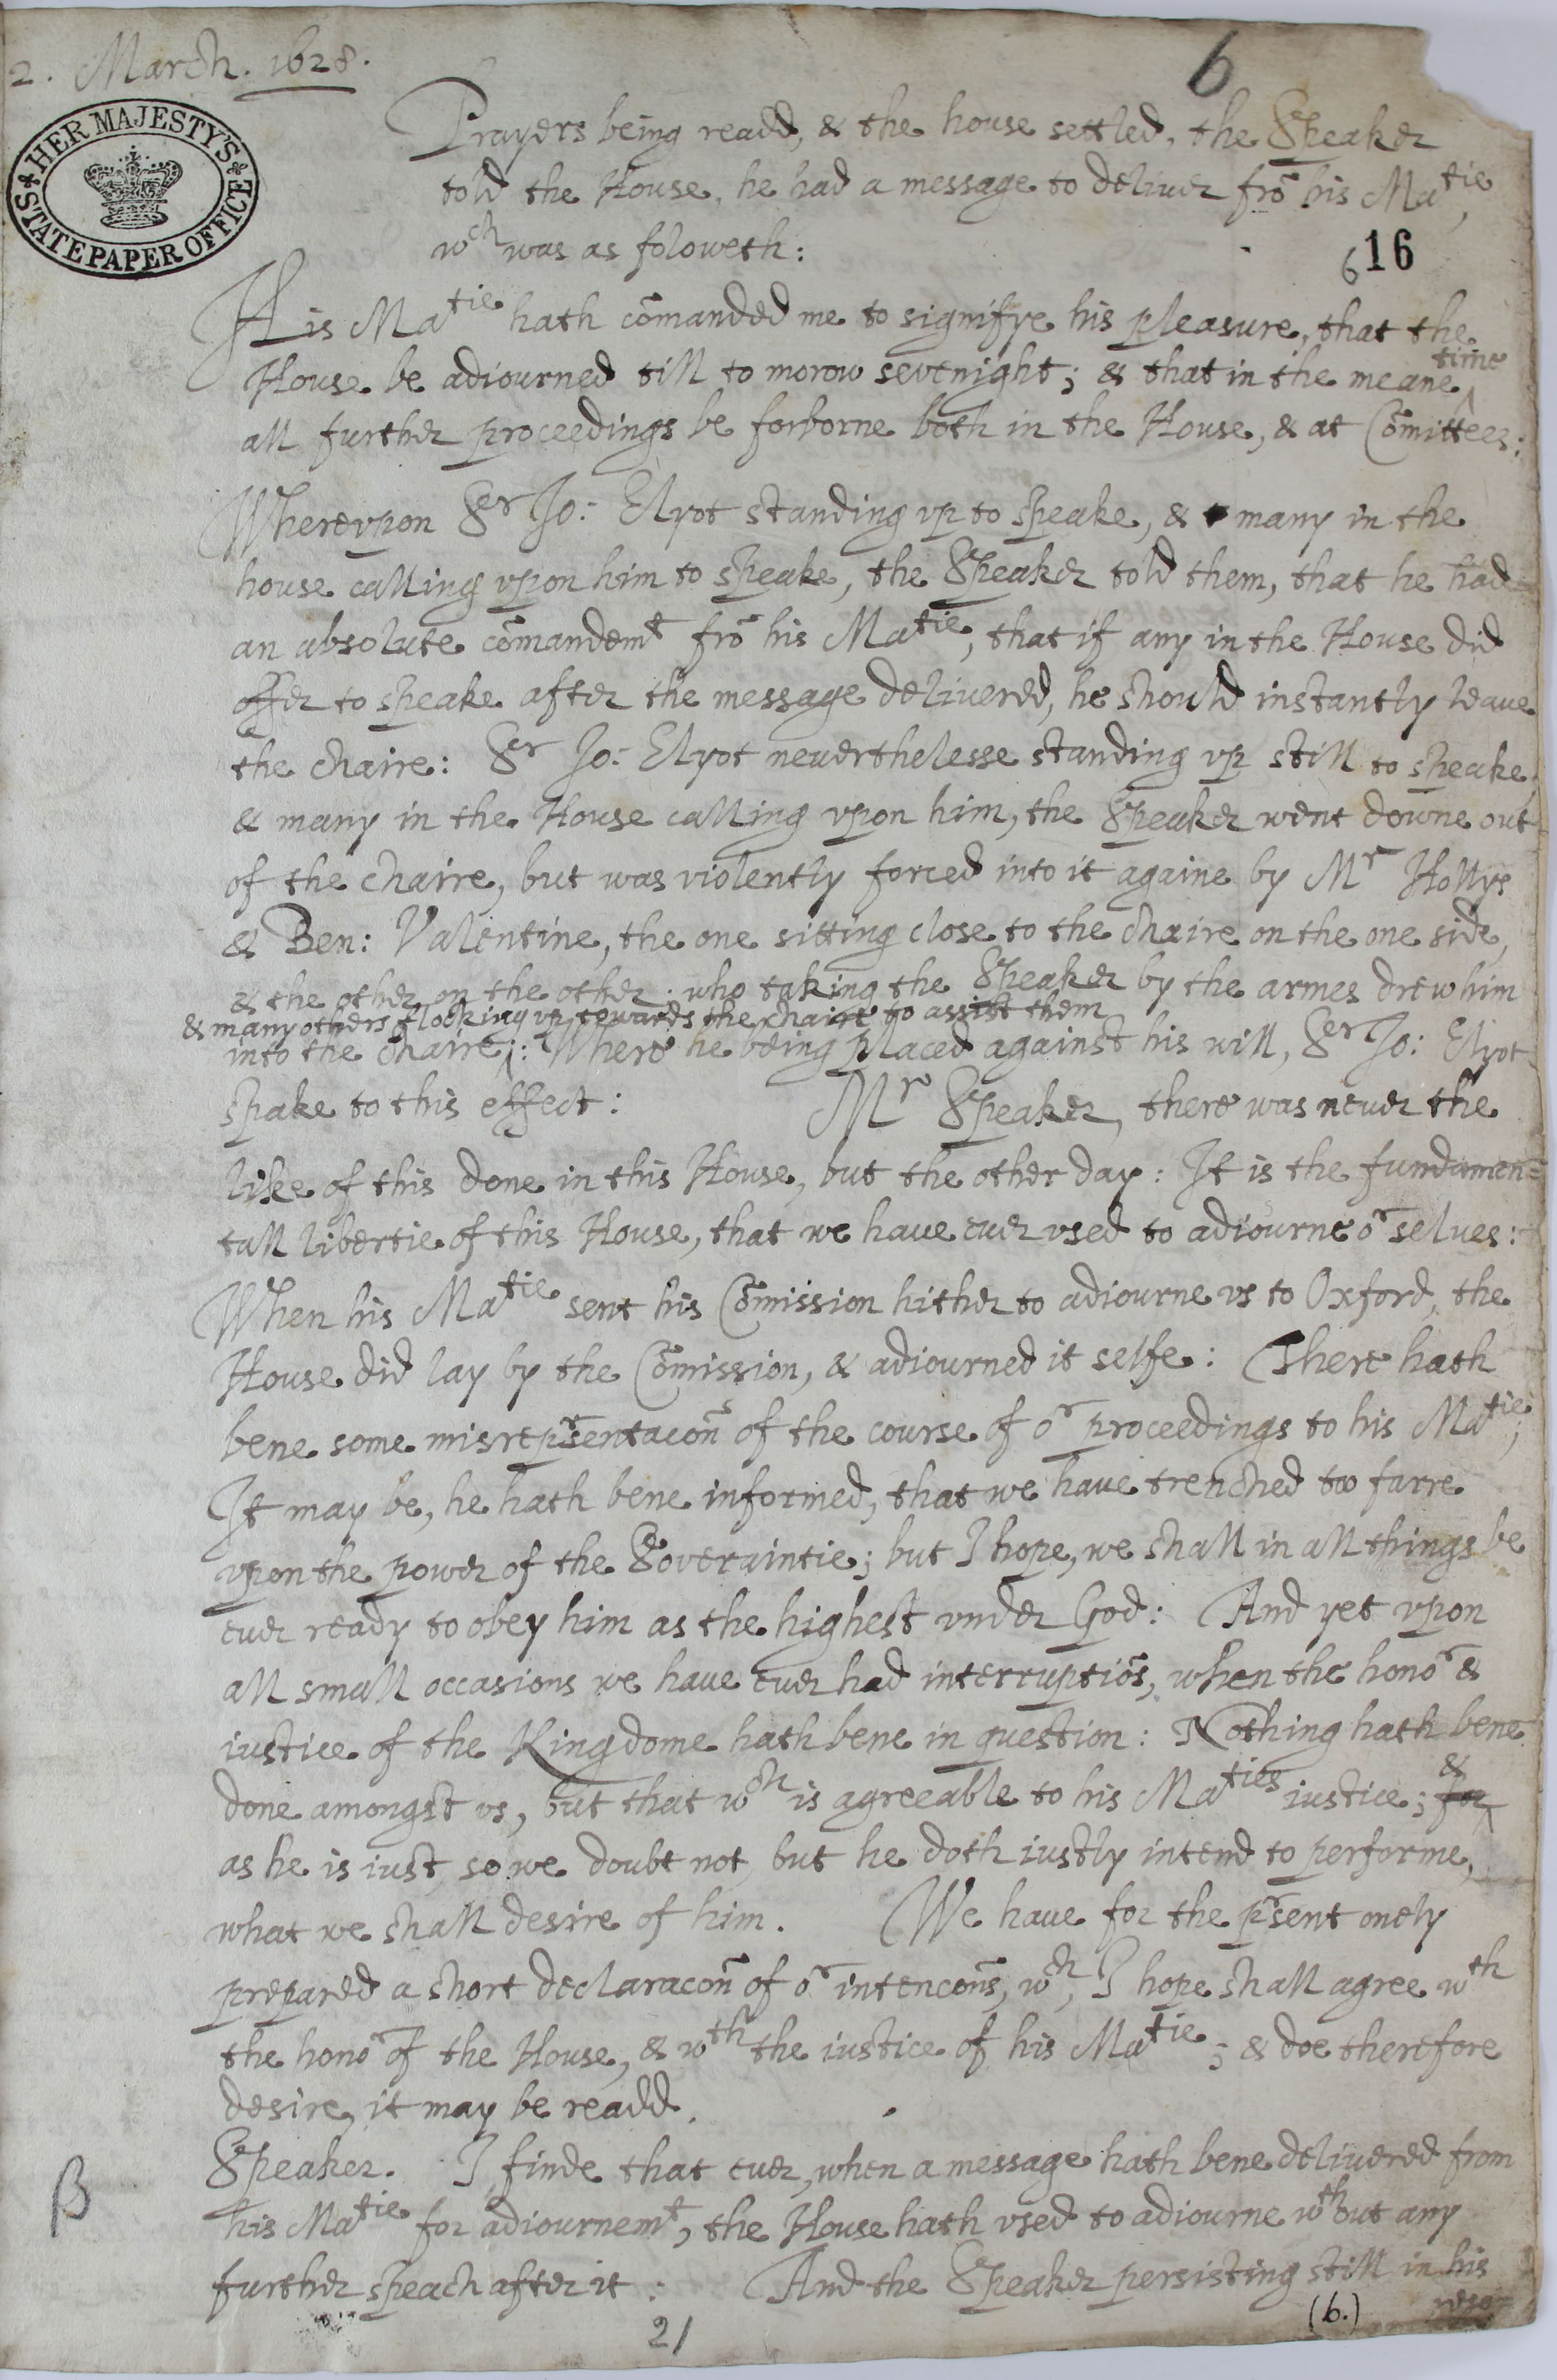 2. March. 1628.
6
HER MAJESTY'S
STATE PAPER OFFICE
Prayers being readd, & the house settled, the Speaker
told the House, he had a message to deliuer frõ his Ma^tie,
w^ch was as foloweth:
6 16
His Ma^tie hath cõmanded me to signifye his pleasure, that the
House be adiourned till to morow sevenight; & that in the meane ^time
all further proceedings be forborne both in the House, & at Cõmittees:
Wherevpon S^r Jo: Elyot standing vp to speake, & many in the
house calling vpon him to speake, the Speaker told them, that he had
an absolute cõmandem^t frõ his Ma^tie, that if any in the House did
offer to speake after the message delivered, he should instantly leaue
the chaire: S^r Jo: Elyot neuerthelesse standing vp still to speake,
& many in the House calling vpon him, the Speaker went downe out
of the chaire, but was violently forced into it againe by M^r Hollys
& Ben: Valentine, the one sitting close to the chaire on the one side,
& the other on the other: who taking the Speaker by the armes drew him
& many others flocking vp towards the chaire to assist them
into the chaire: Where he being placed against his will, S^r Jo: Elyot
spake to this effect: M^r Speaker, there was neuer the
like of this done in this House, but the other day: It is the fundamen=
tall libertie of this House, that we haue euer vsed to adiourne o^r selues:
When his Ma^tie sent his Cõmission hither to adiourne vs to Oxford, the
House did lay by the Cõmission, & adiourned it selfe: There hath
bene some misrep^rsentacõns of the course of o^r proceedings to his Ma^tie;
It may be, he hath bene informed, that we haue trenched too farre
vpon the power of the Soveraintie; but I hope, we shall in all things be
euer ready to obey him as the highest vnder God: And yet vpon
all small occasions we haue euer had interruptiõs, when the hono^r &
iustice of the Kingdome hath bene in question: Nothing hath bene
done amongst vs, but that w^ch is agreeable to his Ma^ties iustice; for ^&
as he is iust, so we doubt not, but he doth iustly intend to performe,
what we shall desire of him. We haue for the p^rsent onely
prepared a short declaracõn of o^r intencõns, w^ch, I hope shall agree w^th
the hono^r of the House, & w^th the iustice of his Ma^tie; & doe therefore
desire, it may be readd.
Speaker. I finde that euer, when a message hath bene delivered from
β
his Ma^tie for adiournem^t, the House hath vsed to adiourne w^thout any
further speach after it: And the Speaker persisting still in his
(6.) reso=
21